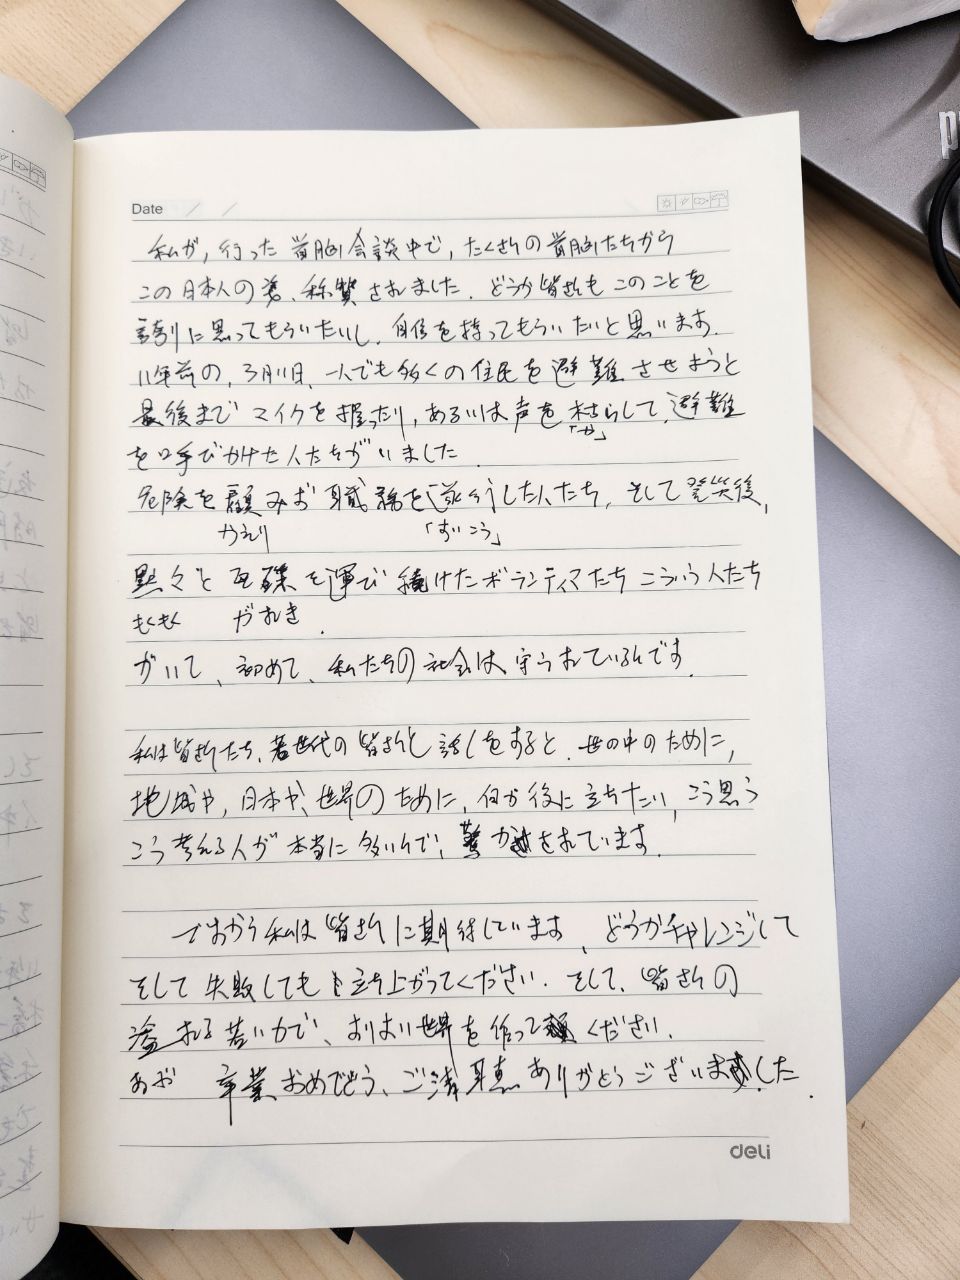 Date / /
私が,行った 首脳会談中で,たくさんの首脳たちから
この日本人の姿、称賛されました. どうか皆さんもこのことを
誇りに思ってもらいたいし. 自信を持ってもらいたいと思います.
11年前の, 3月11日、一人でも多くの住民を避難させようと
最後までマイクを握ったり,あるいは声を枯らして.避難
「か」
を呼びかけた人たちがいました.
危険を顧みず職務を遂行した人たち, そして発災後,
かえり 「すいこう」
黙々と瓦礫を運び続けたボランティアたち こういう人たち
もくもく がれき.
がいて、初めて、私たちの社会は、守られているんです.
私は皆さんたち、若世代の皆さんと話しをすると. 世の中のために,
地域や,日本や、世界のために,何か役に立ちたい,こう思う
こう考える人が本当に多いんで,驚かされています.
ですから私は皆さんに期待しています, どうかチャレンジして
そして失敗しても 立ち上がってください. そして、皆さんの
溢れる若い力で、よりよい世界を作って ください.
卒業おめでとう、ご清聴ありがとうございました.
deli